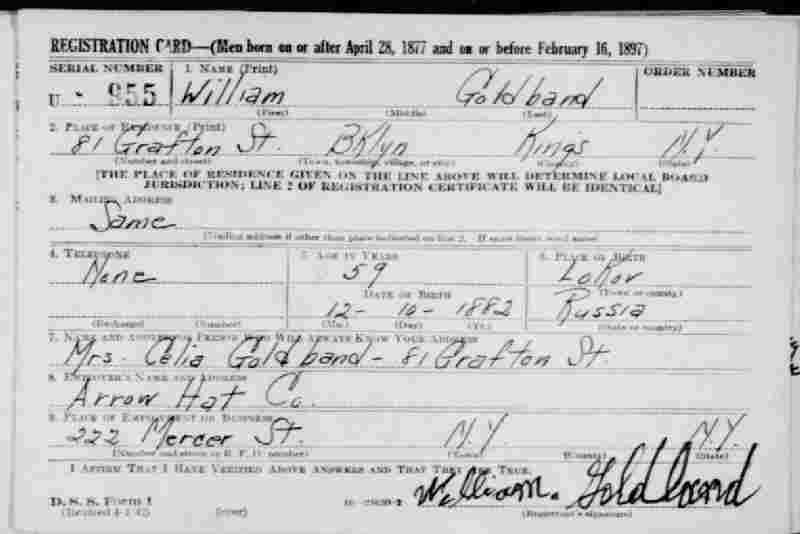 REGISTRATION CARD—(Men born on or after April 28, 1877 and on or before February 16, 1897)
SERIAL NUMBER 1. NAME (Print) ORDER NUMBER
U - 955 William Goldband
(First) (Middle) (Last)
2. PLACE OF RESIDENCE (Print)
81 Grafton St. BKlyn Kings N.Y.
(Number and street) (Town, township, village, or city) (County) (State)
[THE PLACE OF RESIDENCE GIVEN ON THE LINE ABOVE WILL DETERMINE LOCAL BOARD
JURISDICTION; LINE 2 OF REGISTRATION CERTIFICATE WILL BE IDENTICAL]
3. MAILING ADDRESS
Same
[Mailing address if other than place indicated on line 2. If same insert word same]
4. TELEPHONE 5. AGE IN YEARS 6. PLACE OF BIRTH
None 59 Lokov
DATE OF BIRTH (Town or county)
12- 10- 1882 Russia
(Exchange) (Number) (Mo.) (Day) (Yr.) (State or country)
7. NAME AND ADDRESS OF PERSON WHO WILL ALWAYS KNOW YOUR ADDRESS
Mrs. Celia Goldband - 81 Grafton St.
8. EMPLOYER'S NAME AND ADDRESS
Arrow Hat Co.
9. PLACE OF EMPLOYMENT OR BUSINESS
222 Mercer St. N.Y. N.Y.
(Number and street or R. F. D. number) (Town) (County) (State)
I AFFIRM THAT I HAVE VERIFIED ABOVE ANSWERS AND THAT THEY ARE TRUE.
D. S. S. Form 1 William. Goldband
(Revised 4-1-42) (over) (Registrant's signature)